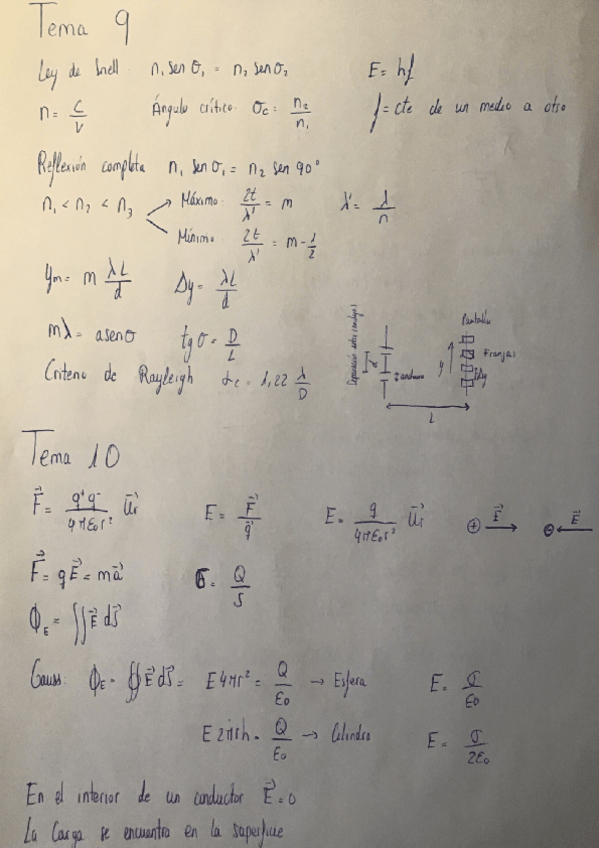 Tema 9
Ley de Snell n₁ sen σ₁ = n₂ sen σ₂ E = hf
n = c/v Ángulo crítico: σc = n₂/n₁ f = cte de un medio a otro
Reflexión completa n₁ sen σ₁ = n₂ sen 90°
n₁ < n₂ < n₃ Máximo: 2t/λ' = m λ' = λ/n
Mínimo 2t/λ' = m - 1/2
yₘ = m λL/d Δy = λL/d
mλ = a sen σ tg σ = D/L
Criterio de Rayleigh αc = 1,22 λ/D
Pantalla
Franjas
Δy
y
d
L
Tema 10
F⃗ = q⁺q⁻/4πε₀r² u⃗r E = F⃗/q⃗ E = q/4πε₀r² u⃗r ⊕ E⃗ → ⊖ E⃗ ←
F⃗ = qE⃗ = ma⃗ σ = Q/S
ϕE = ∬E⃗ dS⃗
Gauss: ϕE = ∯E⃗ dS⃗ = E4πr² = Q/ε₀ → Esfera E = σ/ε₀
E2πrh = Q/ε₀ → Cilindro E = σ/2ε₀
En el interior de un conductor E⃗ = 0
La Carga se encuentra en la superficie